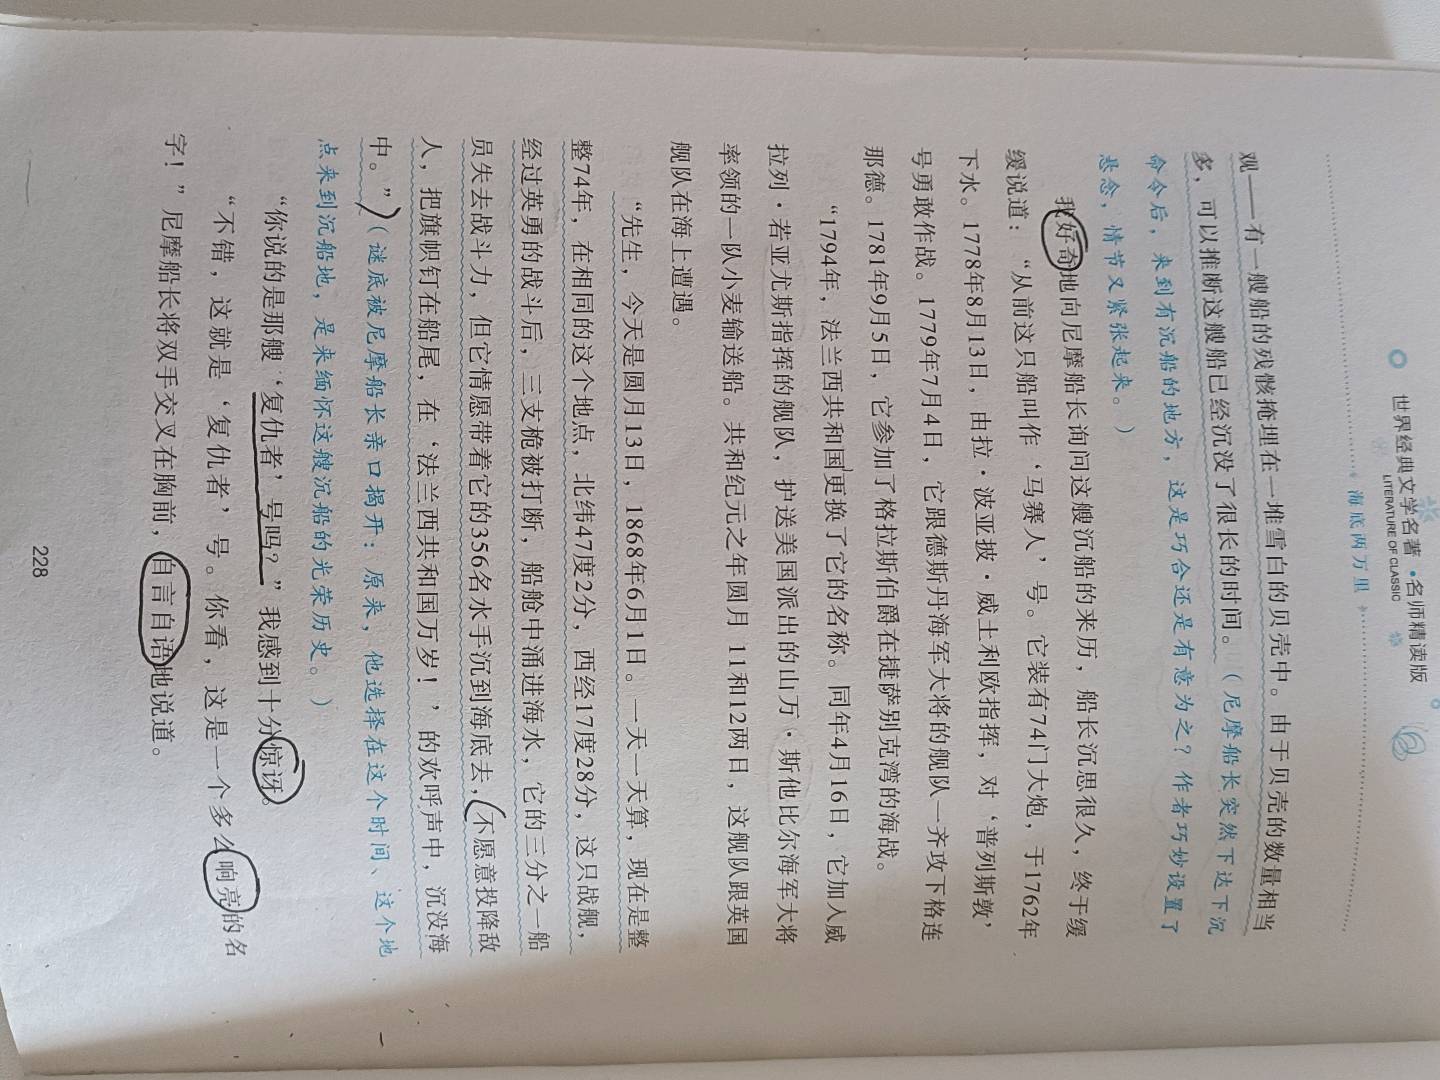 世界经典文学名著·名师精读版
LITERATURE OF CLASSIC
海底两万里
观——有一艘船的残骸掩埋在一堆雪白的贝壳中。由于贝壳的数量相当
多，可以推断这艘船已经沉没了很长的时间。（尼摩船长突然下达下沉
命令后，来到有沉船的地方，这是巧合还是有意为之？作者巧妙设置了
悬念，情节又紧张起来。）
我好奇地向尼摩船长询问这艘沉船的来历，船长沉思很久，终于缓
缓说道：“从前这只船叫作‘马赛人’号。它装有74门大炮，于1762年
下水。1778年8月13日，由拉·波亚披·威土利欧指挥，对‘普列斯敦’
号勇敢作战。1779年7月4日，它跟德斯丹海军大将的舰队一齐攻下格连
那德。1781年9月5日，它参加了格拉斯伯爵在捷萨别克湾的海战。
“1794年，法兰西共和国更换了它的名称。同年4月16日，它加入威
拉列·若亚尤斯指挥的舰队，护送美国派出的由万·斯他比尔海军大将
率领的一队小麦输送船。共和纪元之年圆月 11和12两日，这舰队跟英国
舰队在海上遭遇。
“先生，今天是圆月13日，1868年6月1日。一天一天算，现在是整
整74年，在相同的这个地点，北纬47度2分，西经17度28分，这只战舰，
经过英勇的战斗后，三支桅被打断，船舱中涌进海水，它的三分之一船
员失去战斗力，但它情愿带着它的356名水手沉到海底去，不愿意投降敌
人，把旗帜钉在船尾，在‘法兰西共和国万岁！’的欢呼声中，沉没海
中。”（谜底被尼摩船长亲口揭开：原来，他选择在这个时间、这个地
点来到沉船地，是来缅怀这艘沉船的光荣历史。）
“你说的是那艘‘复仇者’号吗？”我感到十分惊讶。
“不错，这就是‘复仇者’号。你看，这是一个多么响亮的名
字！”尼摩船长将双手交叉在胸前，自言自语地说道。
228